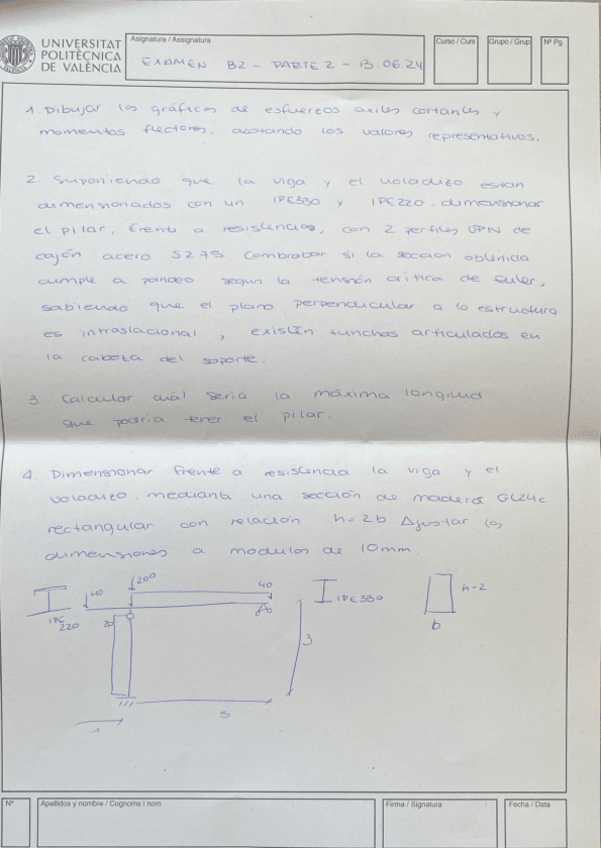 UNIVERSITAT
POLITÈCNICA
DE VALÈNCIA
Asignatura / Assignatura
EXAMEN B2 - PARTE 2 - 13.06.24
Curso / Curs
Grupo / Grup
Nº Pg.
1. Dibujar los gráficos de esfuerzos axiles cortantes y
momentos flectores, acotando los valores representativos.
2. Suponiendo que la viga y el voladizo estan
dimensionados con un IPE330 y IPE220. dimensionar
el pilar, frente a resistencia, con 2 perfiles UPN de
cajón acero S275 Comprobar si la seccion obtenida
cumple a pandeo segun la tensión critica de Euler,
sabiendo que el plano perpendicular a la estructura
es intraslacional, existen articulados en
la cabeza del soporte.
3. Calcular cuál seria la máxima longitud
que podria tener el pilar.
4. Dimensionar frente a resistencia la viga y el
voladizo, mediante una sección de madera GL24c
rectangular con relación h=2b. Ajustar las
dimensiones a modulos de 10mm.
IPE
220
40
200
20
40
IPE330
h=2
b
3
5
1
Nº
Apellidos y nombre / Cognoms i nom
Firma / Signatura
Fecha / Data